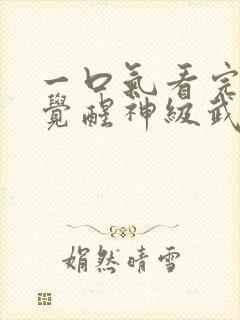 一口氣看完
覺醒神級武
娟然晴雪